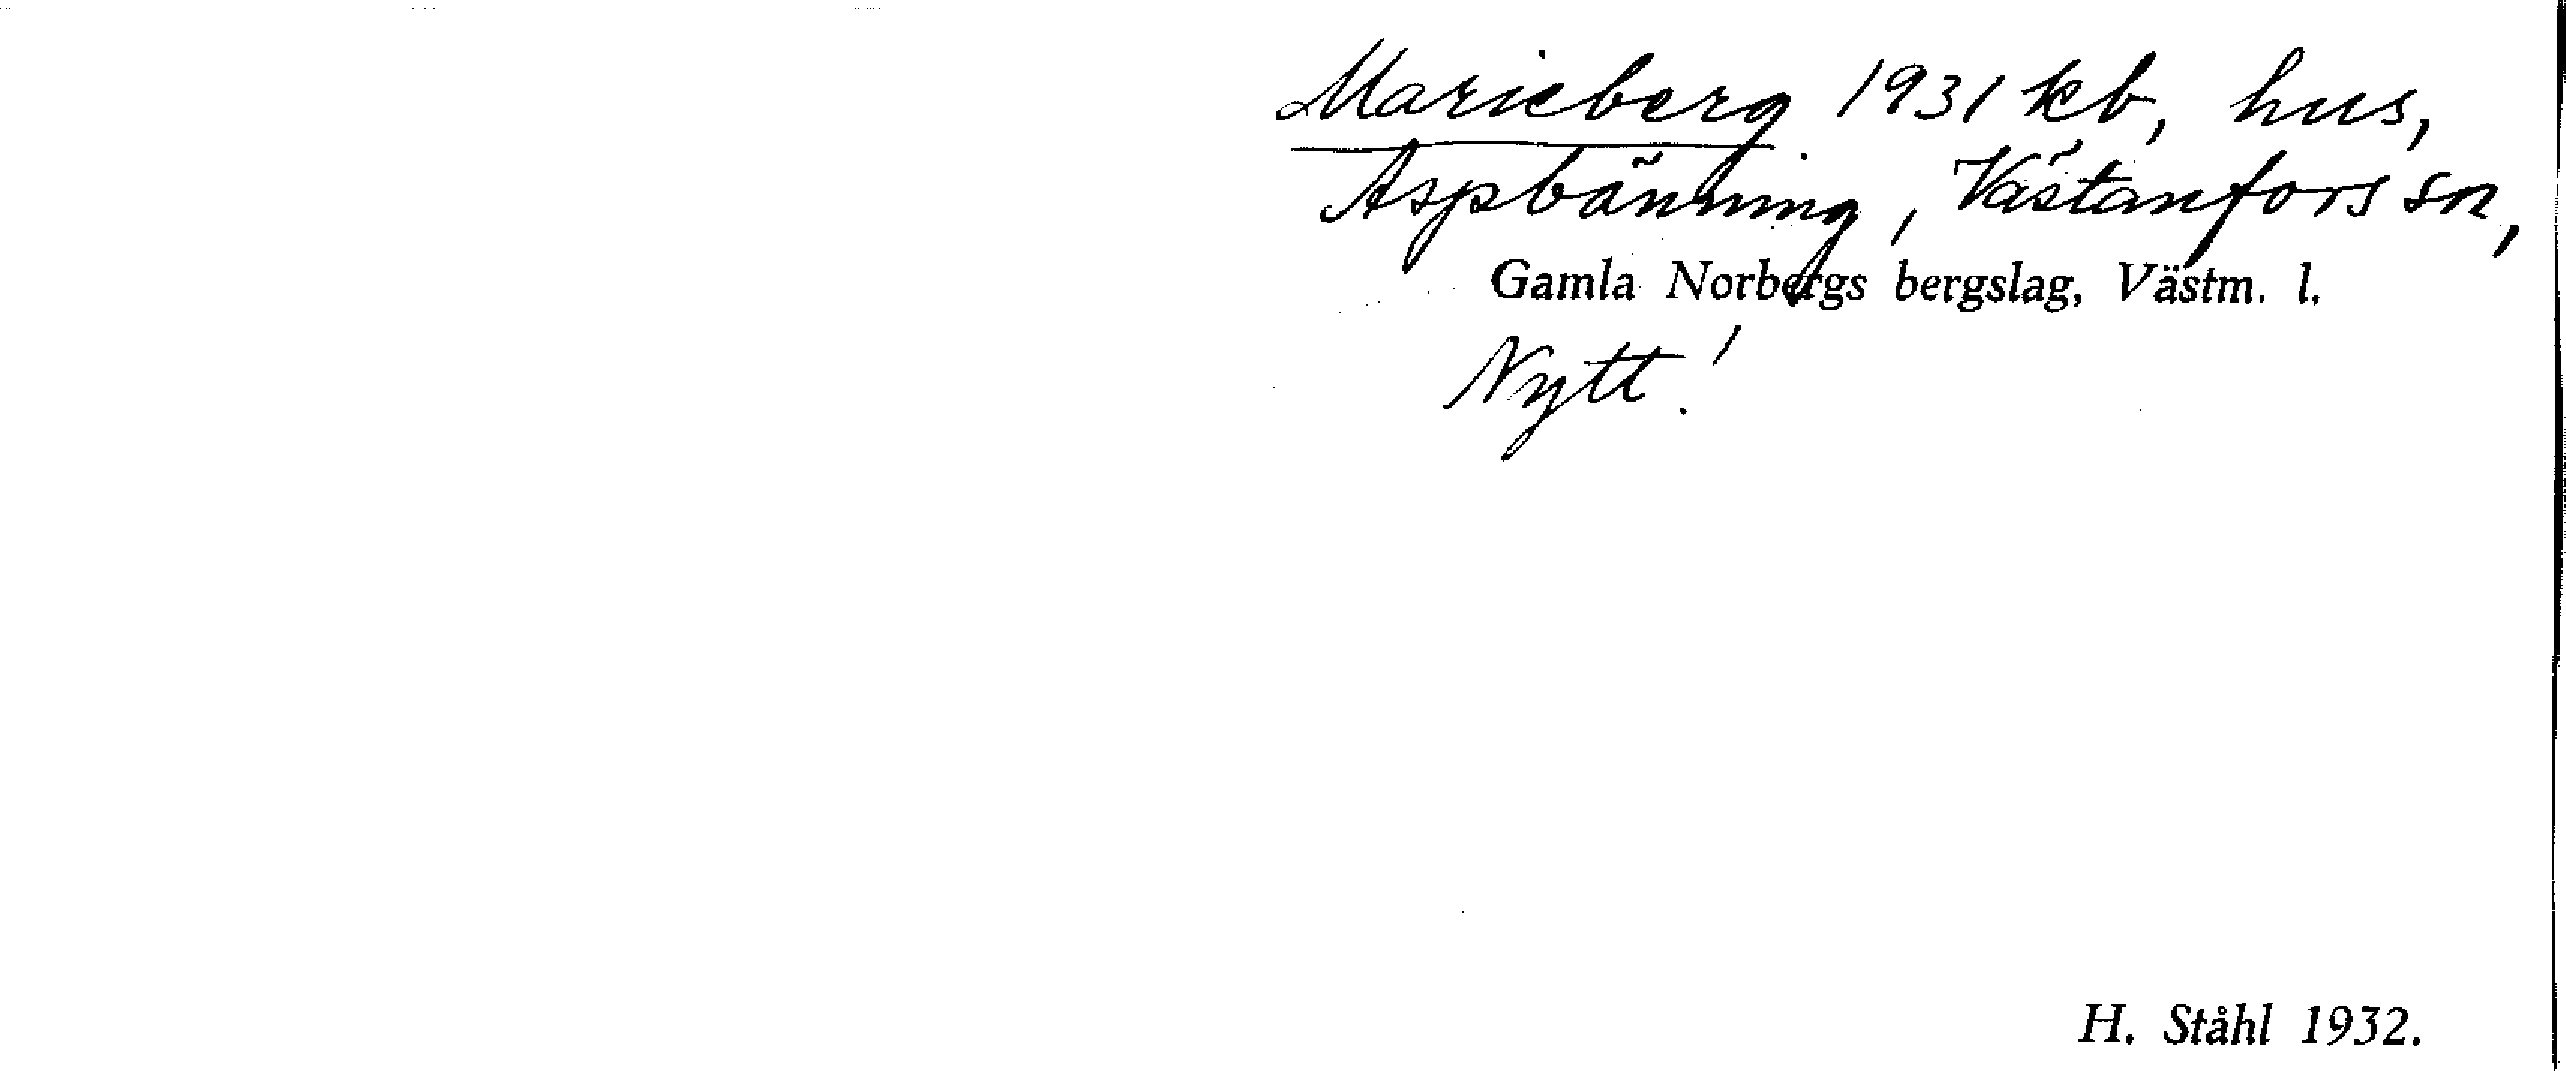 Marieberg 1931 kb, hus,
Aspbänning, Västanfors sn,
Gamla Norbergs bergslag, Västm. l.
Nytt!
H. Ståhl 1932.